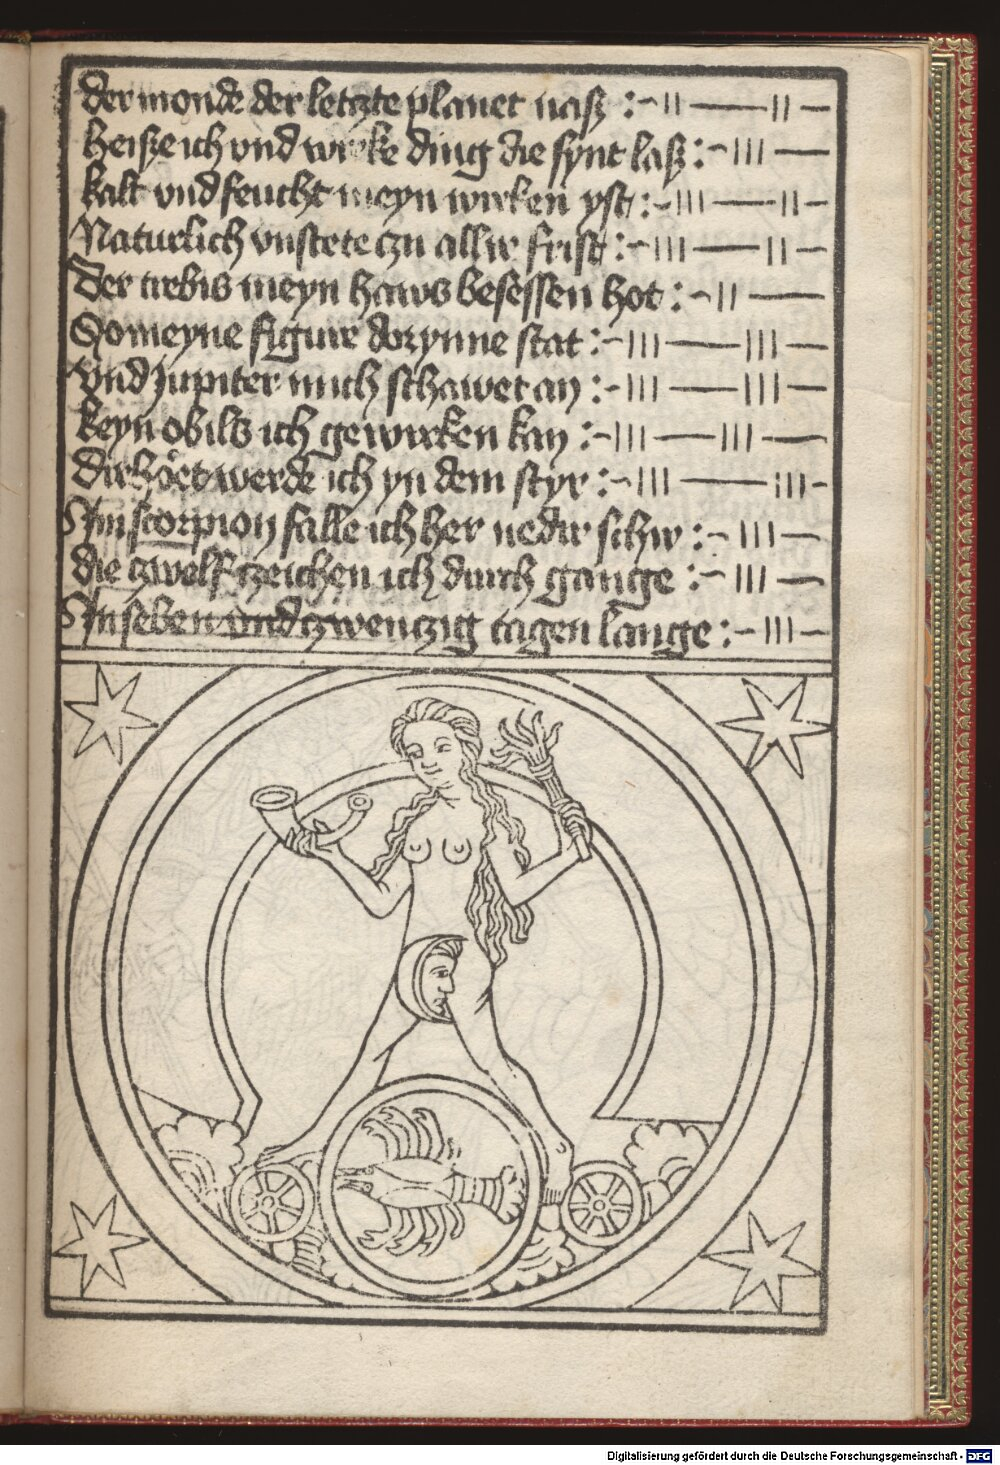 der monde der letzte planet nasz :~
heisze ich vnd wirke ding die synt lasz :~
kalt vnd feucht meyn wirken yst :~
Naturlich vnstete czu allir frist :~
Der crebis meyn haws besessen hot :~
So meyne figure dorynne stat :~
Vnd Jupiter mich schawet an :~
keyn obils ich gewircken kan :~
dirhoet werde ich yn dem styr :~
Im scorpion falle ich her nedir schir :~
die czwelf czeichen ich durch gange :~
In seben vnd czwenczig tagen lange :~
Digitalisierung gefördert durch die Deutsche Forschungsgemeinschaft - DFG